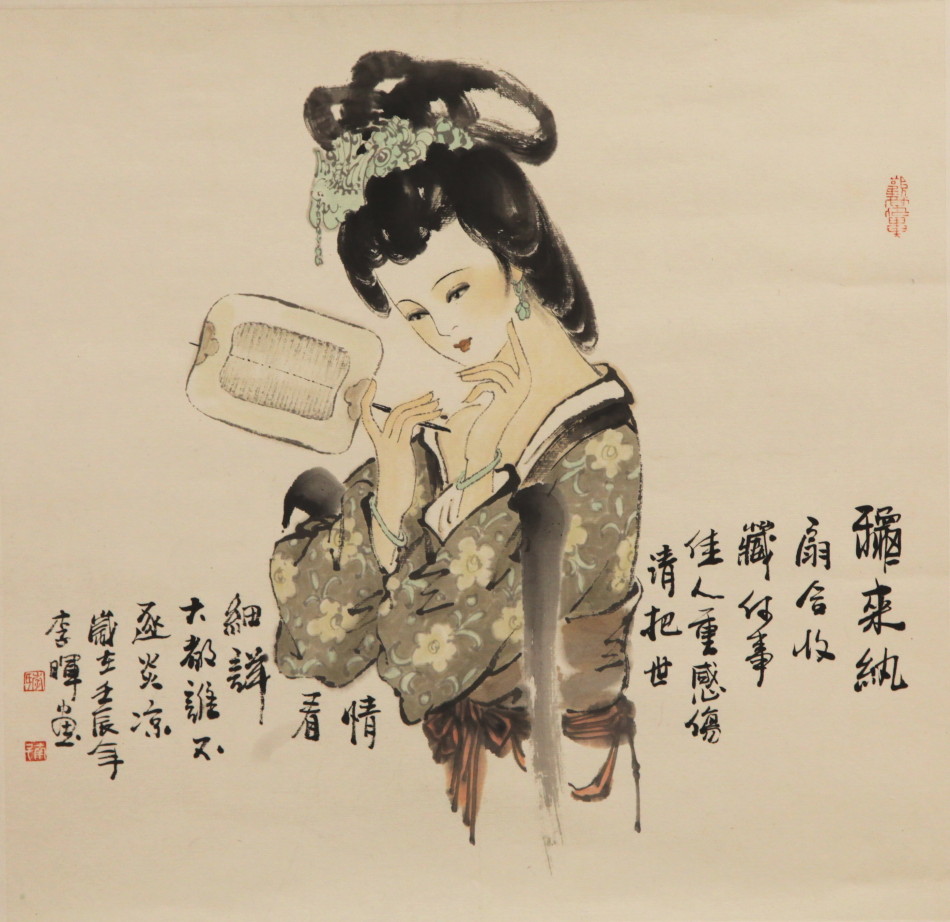 龝来紈
扇合收
藏何事
佳人重感傷
請把世
情
看
細詳
大都誰不
逐炎凉
歲在壬辰年
李暉畫